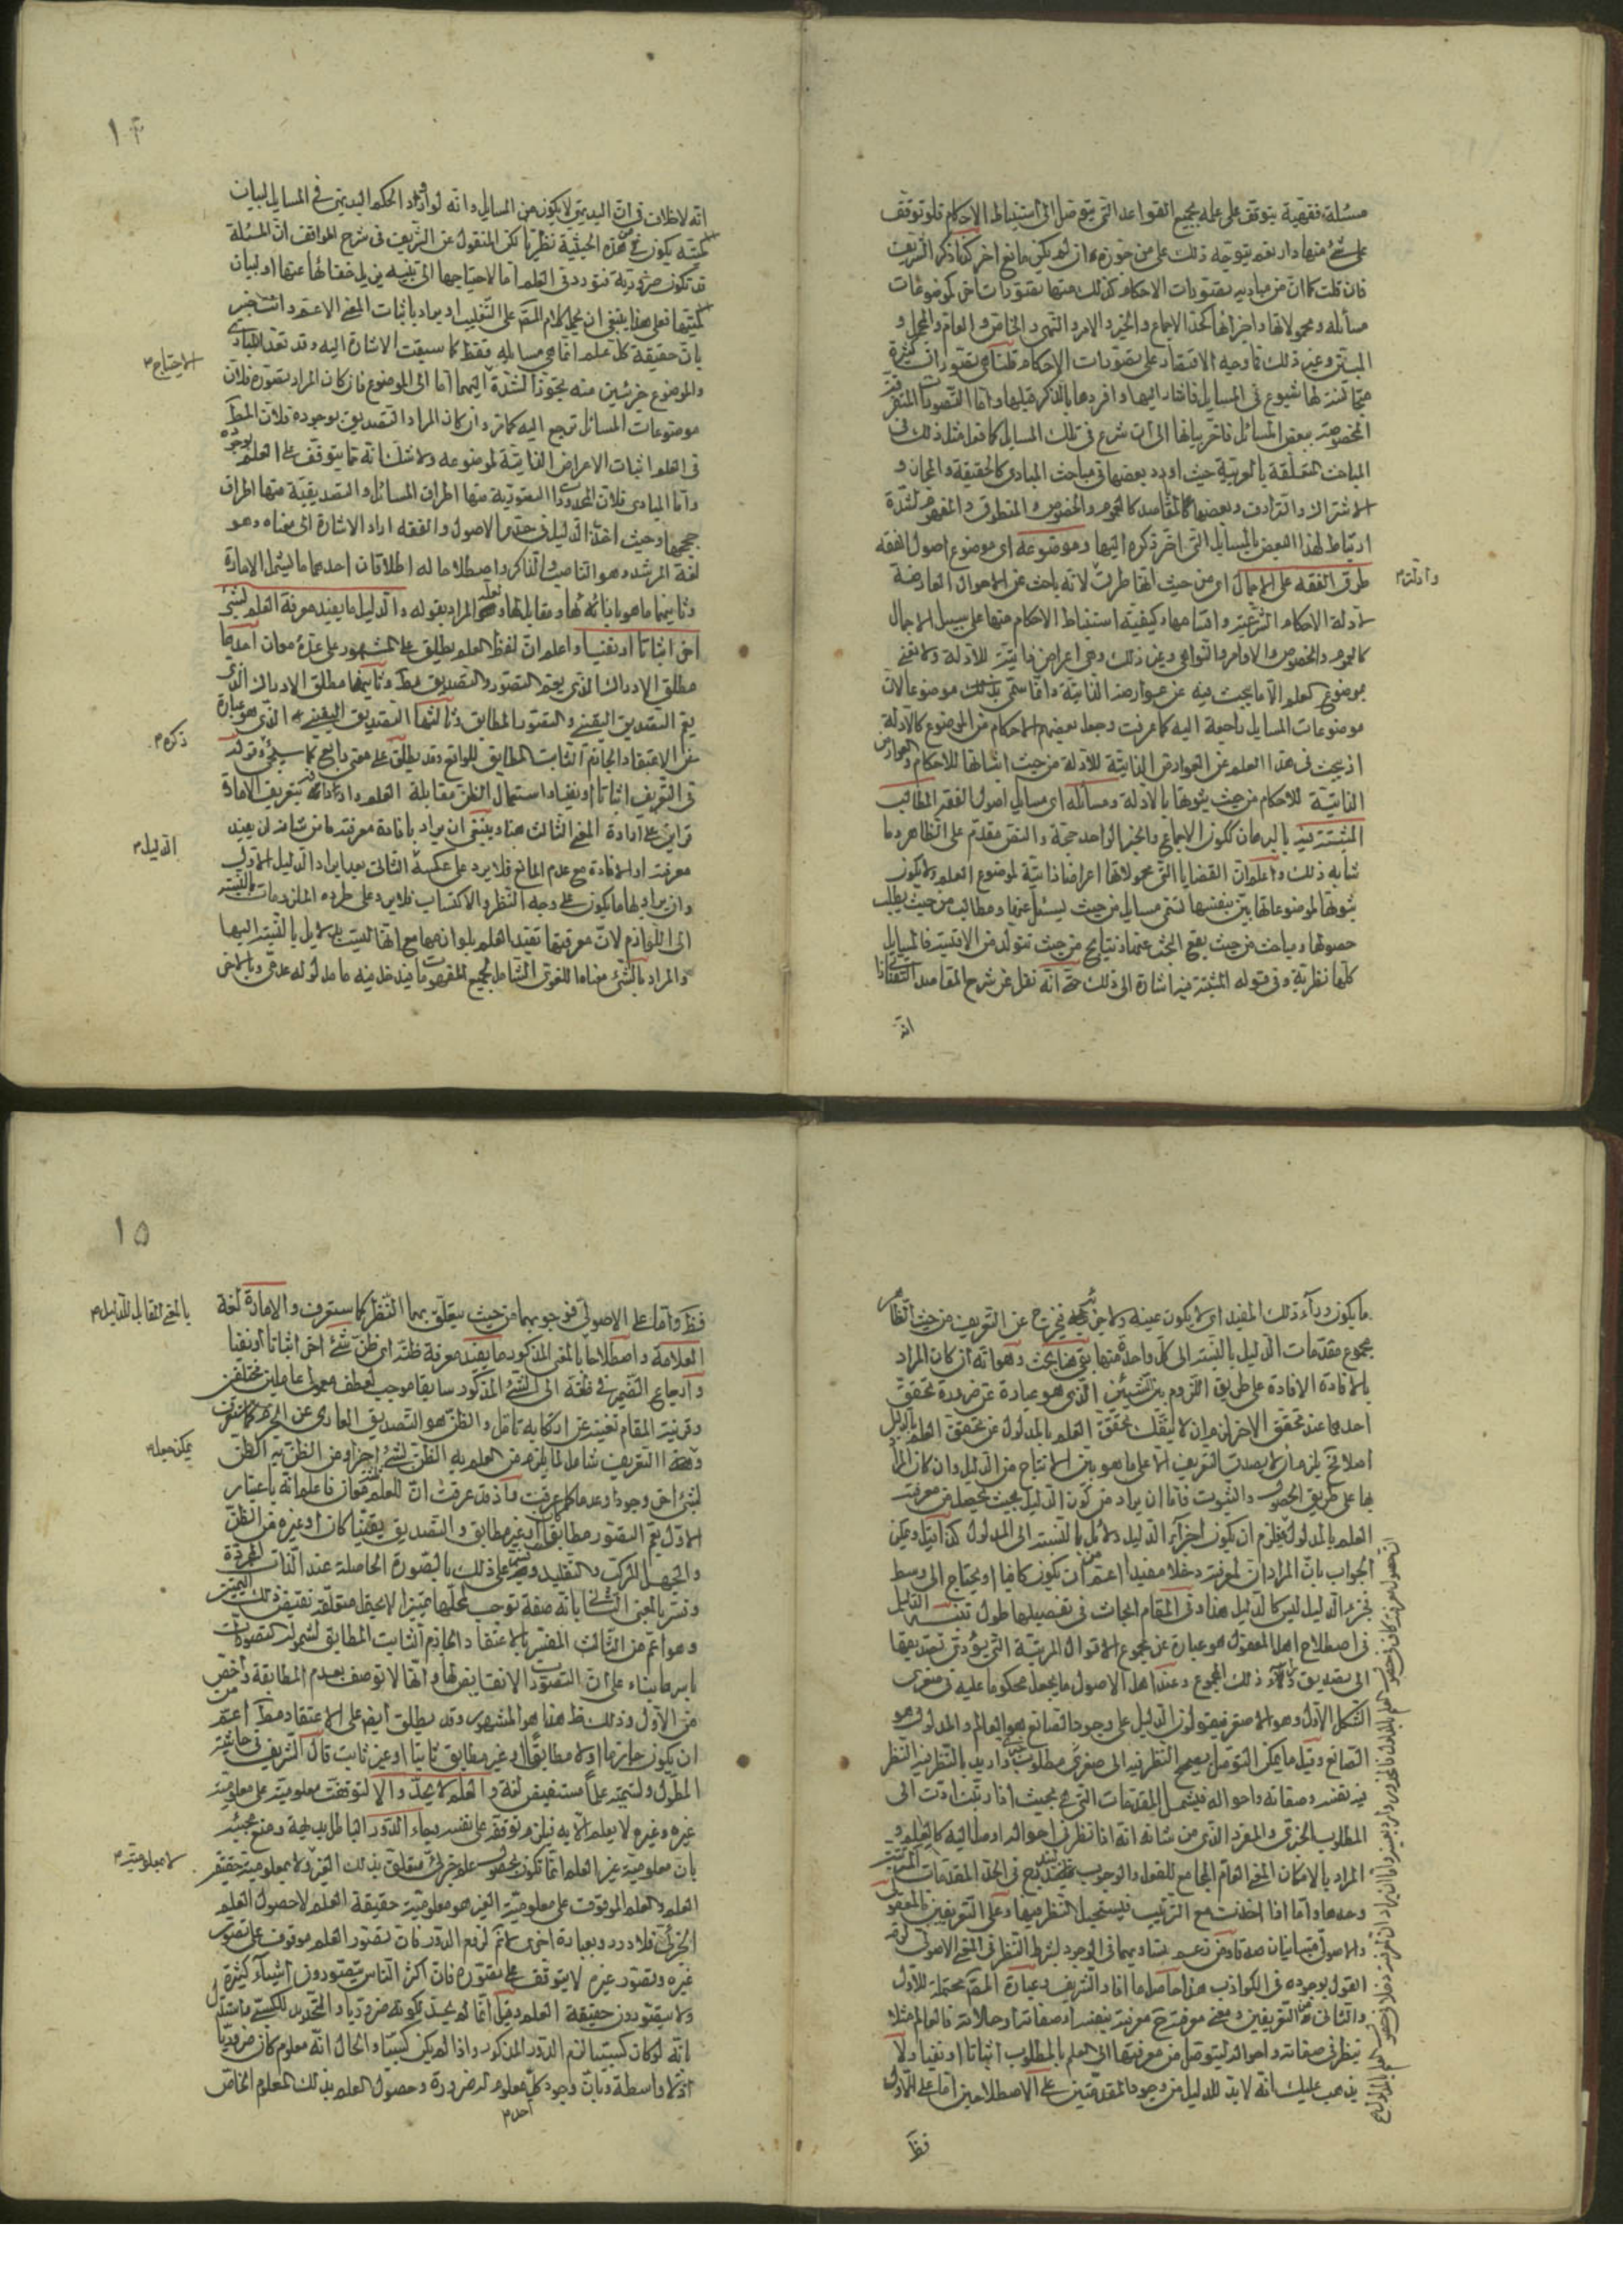 مسئلة فقهية يتوقف على علمه بجميع القواعد التى يتوصل الى استنباط الاحكام فلو توقف
على شئ منها دار نعم يتوجه ذلك على من جوزه ان لم يكن مانع اخر كما ذكر الشريف
فان قلت كما ان من مباديه تصورات الاحكام كذلك منها تصورات اخر كموضوعات
مسائله ومحمولاتها واجزائها كحد الاجماع والخبر والامر والنهى والخاص والعام والمجمل و
المبين وغير ذلك فما وجه الاقتصار على تصورات الاحكام قلنا هى تصورات كثيرة
متجانسة لها شيوع فى المسايل فاشار اليها وافردها بالذكر قبلها واما التصورات المتفرقة
المختصة ببعض المسائل فاخر بيانها الى ان شرع فى تلك المسايل كما فعل مثل ذلك فى
المباحث المتعلقة بالعربية حيث اورد بعضها فى مباحث المبادى كالحقيقة والمجاز و
الاشتراك والترادف وبعضها فى المقاصد كالعموم والخصوص والمنطوق والمفهوم لشدة
ارتباط لهذا البعض بالمسايل التى اخر ذكره اليها وموضوعه اى موضوع اصول الفقه
طرق الفقه على الاجمال اى من حيث انها طرق لانه باحث عن الاحوال العارضة
وادلته م
لادلة الاحكام الشرعية واقسامها وكيفية استنباط الاحكام منها على سبيل الاجمال
كالعموم والخصوص والاوامر والنواهى وغير ذلك وهى اعراض ذاتية للادلة ولا نعنى
بموضوع العلم الا ما يبحث فيه عن عوارضه الذاتية وانما سمى بذلك موضوعا لان
موضوعات المسايل راجعة اليه كما عرفت وجعل بعضهم الاحكام من الموضوع كالادلة
اذ يبحث فى هذا العلم عن العوارض الذاتية للادلة من حيث اثباتها للاحكام والعوارض
الذاتية للاحكام من حيث ثبوتها بالادلة ومسائله اى مسايل اصول الفقه المطالب
المثبتة فيه بالبرهان ككون الاجماع والخبر الواحد حجة والنص مقدم على الظاهر وما
شابه ذلك واعلم ان القضايا التى محمولاتها اعراضا ذاتية لموضوع العلم ولا يكون
ثبوتها لموضوعاتها بين بنفسها تسمى مسايل من حيث يسئل عنها ومطالب من حيث يطلب
حصولها ومباحث من حيث يقع البحث عنها ونتايج من حيث تتولد من الاقيسة فالمسايل
كلها نظرية وفى قوله المثبتة فيه اشارة الى ذلك حتى انه نقل عن شرح المقاصد للتفتازانى
انه
١٤
انه لا خلاف فى ان البديهى لا يكون من المسايل وانه لو اورد الحكم البديهى فى المسايل لبيان
لميته يكون من هذه الحيثية نظريا لكن المنقول عن الشريف فى شرح المواقف ان المسئلة
قد تكون ضرورية فتورد فى العلم اما لاحتياجها الى تنبيه يزيل خفائها عنها او لبيان
لميتها فعلى هذا ينبغى ان يحمل كلام المص على التغليب او يراد باثبات المعنى الاعم وانت خبير
بان حقيقة كل علم انما هى مسايله فقط كما سبقت الاشارة اليه وقد تعد المبادى
الاحتياج م
والموضوع جزئين منه تجوزا لشدة اليهما اما الى الموضوع فان كان المراد تصوره فلان
موضوعات المسائل ترجع اليه كما مر وان كان المراد التصديق بوجوده فلان المط
فى العلم اثبات الاعراض الذاتية لموضوعه ولا شك انه مما يتوقف على العلم بوجوده
واما المبادى فلان المحدود التصورية منها اطراف المسائل والتصديقية منها اطراف
حججها وحيث اخذ الدليل فى حدى الاصول والفقه اراد الاشارة الى معناه وهو
لغة المرشد وهو الناصب والذاكر واصطلاحا له اطلاقان احدهما ما يشمل الامارة
وثانيهما ما هو بازائه لها ومقابل لها وهو المراد بقوله والدليل ما يفيد معرفة العلم بشئ
اخر اثباتا او نفيا واعلم ان لفظ العلم يطلق على المشهور على عدة معان احدها
مطلق الادراك الذى يعم التصور والتصديق مط وثانيها مطلق الادراك الذى
يعم التصديق اليقينى والتصور المطابق وثالثها التصديق اليقينى الذى هو عبارة
ذكره م
عن الاعتقاد الجازم الثابت المطابق للواقع وقد يطلق على معنى رابع كما سيجئ وقوله
فى التعريف اثباتا او نفيا واستعمال الظن مقابلة العلم وارادته فى تعريف الامارة
قرائن على ارادة المعنى الثالث هنا وينبغى ان يراد بافادة معرفته ما من شانه ان يفيد
الدليل م
معرفته او الافادة مع عدم المانع فلا يرد على عكسه الثانى بعد ايراد الدليل الاول
وان يراد بها ما يكون على وجه النظر والاكتساب فلا يرد على طرده الملزومات بالنسبة
الى اللوازم لان معرفتها تفيد العلم بلوازمها مع انها ليست بدلايل بالنسبة اليها
والمراد بالشئ معناه اللغوى الشامل لجميع المفهومات فيدخل فيه ما مدلوله عدمى وبالاخر
ما يكون وراء ذلك المفيد اى لا يكون عينه ولا جزئه فيخرج عن التعريف من حيث الظاهر
مجموع مقدمات الدليل بالنسبة الى كل واحدة منها بقى هنا بحث وهو انه ان كان المراد
بالافادة الافادة على طريق اللزوم بين الشيئين الذى هو عبارة عن ضرورة تحقق
احدهما عند تحقق الاخر او ان لا ينفك تحقق العلم بالمدلول عن تحقق العلم بالدليل
اصلا يلزم ان لا يصدق التعريف الا على ما هو بين الانتاج من الدليل وان كان المراد
بها على طريق الحصول والثبوت فاما ان يراد من كون الدليل بحيث يحصل من معرفته
العلم بالمدلول فيلزم ان يكون اجزاء الدليل دلائل بالنسبة الى المدلول كذا قيل ويمكن
الجواب بان المراد ان لمعرفته دخلا مفيدا اعم من ان يكون كافيا او يحتاج الى وسط
فجزء الدليل ليس كالدليل هذا وفى المقام ابحاث فى تفصيلها طول تنبيه الدليل
فى اصطلاح اهل المعقول هو عبارة عن مجموع الاقوال المرتبة التى يؤدى تصديقها
الى تصديق وراء ذلك المجموع وعند اهل الاصول ما يجعل محكوما عليه فى صغرى
الشكل الاول وهو الاصغر فيقولون الدليل على وجود الصانع هو العالم والمدلول هو
الصانع وقيل ما يمكن التوصل بصحيح النظر فيه الى صغرى مطلوب واريد بالنظر فيه النظر
فيه نفسه وصفاته واحواله فيشمل المقدمات التى هى بحيث اذا رتبت ادت الى
المطلوب الجزئى والمفرد الذى من شانه انه اذا نظر فى احواله اوصل اليه كالعالم و
المراد بالامكان المعنى العام الجامع للفعل والوجوب فيندرج فى الحد المقدمات المترتبة
وحدها واما اذا اخذت مع الترتيب فيستحيل النظر فيها وعلى التعريفين فالمعقولى
والاصولى متباينان صدقا ومن زعم تساويهما فى الوجود بشرط النظر فى المعنى الاصولى لزمه
القول بوجوده فى الكواذب هذا حاصل ما افاد الشريف وعبارة المص محتملة للاول
والثانى من التعريفين ومعنى معرفته ح معرفته بنفسه او صفاته او حالاته فالعالم مثلا
ينظر فى صفاته واحواله ليتوصل من معرفتها الى العلم بالمطلوب اثباتا او نفيا ولا
يذهب عليك انه لا بد للدليل من وجود المقدمتين على الاصطلاحين اما على الاول
فظ
١٥
فظ واما على الاصولى فوجوبهما من حيث يتعلق بهما النظر كما ستعرف والامارة لغة
بالمعنى المقابل للدليل م
العلامة واصطلاحا بالمعنى المذكور ما يفيد معرفة ظنه اى ظن شئ اخر اثباتا او نفيا
وارجاع الضمير فى ظنه الى الشئ المذكور سابقا موجب لعطف معمولى عاملين مختلفين
وقرينة المقام تغنيه عن ارتكابه تامل والظن هو التصديق العارى عن الجزم كما ستعرف
وهذا التعريف شامل لما يلزم من العلم به الظن بشئ اخر او من الظن به الظن
يمكن جعله م
لشئ اخر وجودا وعدما كما عرفت واذ قد عرفت ان للعلم معان فاعلم انه باعتبار
الاول يعم التصور مطابقا كان او غير مطابق والتصديق يقينيا كان او غيره من الظن
والجهل المركب والتقليد ويسمى على ذلك بالصورة الحاصلة عند الذات المجردة
وفسر بالمعنى الثانى بانه صفة توجب لمحلها تمييزا لا يحتمل متعلقه نقيض ذلك التمييز
وهو اعم من الثالث المفسر بالاعتقاد الجازم الثابت المطابق لشموله التصورات
باسرها بناء على ان التصورات لا نقايض لها وانها لا توصف بعدم المطابقة واخص
من الاول وذلك هنا هو المشهور وقد يطلق ايض على الاعتقاد مط اعم من
ان يكون جازما او لا مطابقا او غير مطابق ثابتا او غير ثابت قال الشريف فى حاشية
المطول وتسميته علما مستفيض لغة والعلم لا يحد والا لتوقفت معلوميته على معلومية
غيره وغيره لا يعلم الا به فيلزم توقفه على نفسه وجاء الدور الباطل بديهة ومنع مجيئه
بان معلومية غير العلم انما تكون بحصول علم جزئى متعلق بذلك الغير ولا بمعلومية حقيقة
لا بمعلوميته م
العلم والعلم الموقوف على معلومية الغير هو معلومية حقيقة العلم لا حصول العلم
الجزئى فلا دور وبعبارة اخرى اتم لرفع الدور فان تصور العلم موقوف على تصور
غيره وتصور غيره لا يتوقف على تصوره فان اكثر الناس يتصورون اشياء كثيرة
ولا يتصورون حقيقة العلم وقيل انما لم يحد لكونه ضروريا والتحديد للكسبى واستدل
بانه لو كان كسبيا لزم الدور المذكور واذا لم يكن كسبيا والحال انه معلوم كان ضروريا
اذ لا واسطة وبان وجود كل معلوم له ضرورة وحصول العلم بذلك المعلوم الخاص
احد م